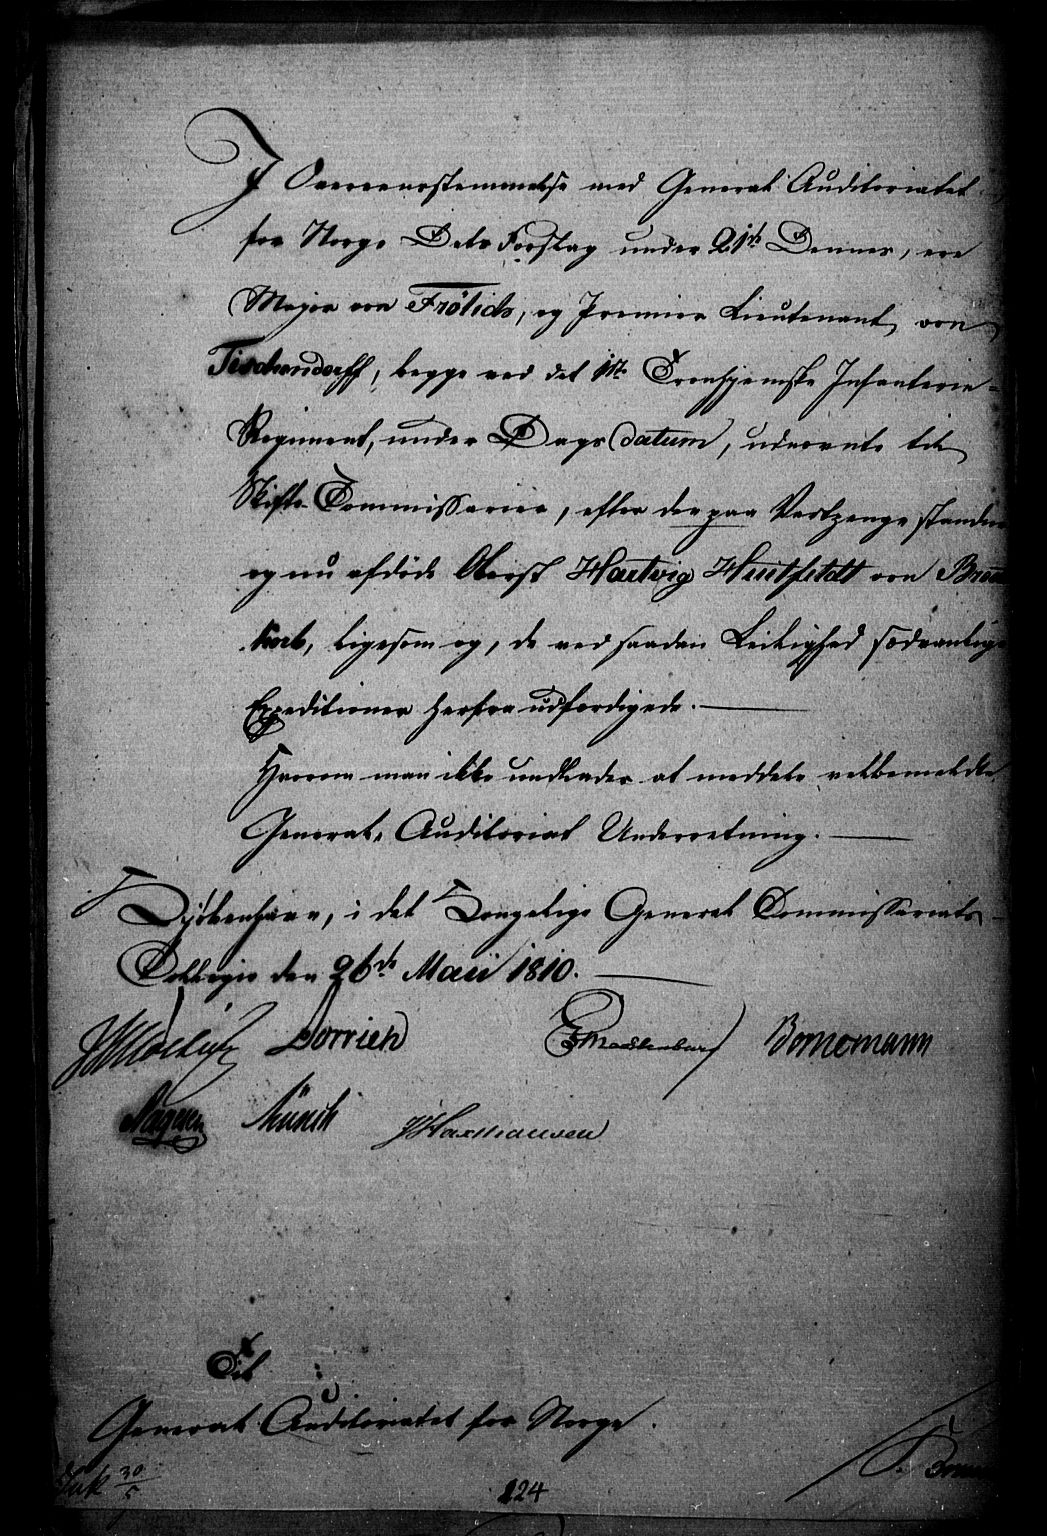 I Overeensstemmelse med General Auditoriatet
for Norge Dets Forslag under 21de Dennes, ere
Major von Frölich, og Premier Lieutenant von
Tischendorff, begge ved det 1ste Tronhjemske Infanterie-
Regiment, under Dags datum, udnævnte til
Skifte-Commissairer, efter den paa Vartpenge standne
og nu afdöde Oberst Hartvig Huitfeldt von
ligesom og, de ved saadan Leilighed sædvanlige
Expeditioner herfra udfærdigede.
Hvorom man ikke undlader at meddele velbemeldte
General-Auditoriat Underretning.
Kjöbenhavn, i det Kongelige General Commissariats-
Collegie den 26de Maii 1810.
Lorrich Bornemann
Münch JHaxthausen
Til
General Auditoriatet for Norge.
30/5
224